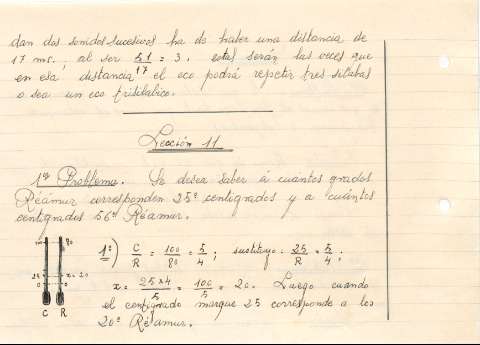 dan dos sonidos sucesivos ha de haber una distancia de
17 ms., al ser 51/17 = 3. estas serán las veces que
en esa distancia el eco podrá repetir tres silabas
o sea un eco trisilabico.
Lección 11
1er Problema. Se desea saber á cuantos grados
Réamur corresponden 25º centigrados y a cuántos
centigrados 56º Réamur.
1º) C/R = 100/80 = 5/4; sustituyo: 25/R = 5/4;
x = 25x4/5 = 100/5 = 20. Luego cuando
el centigrado marque 25 corresponde a los
20º Réamur.
100 80
25 x=20
0 0
C R